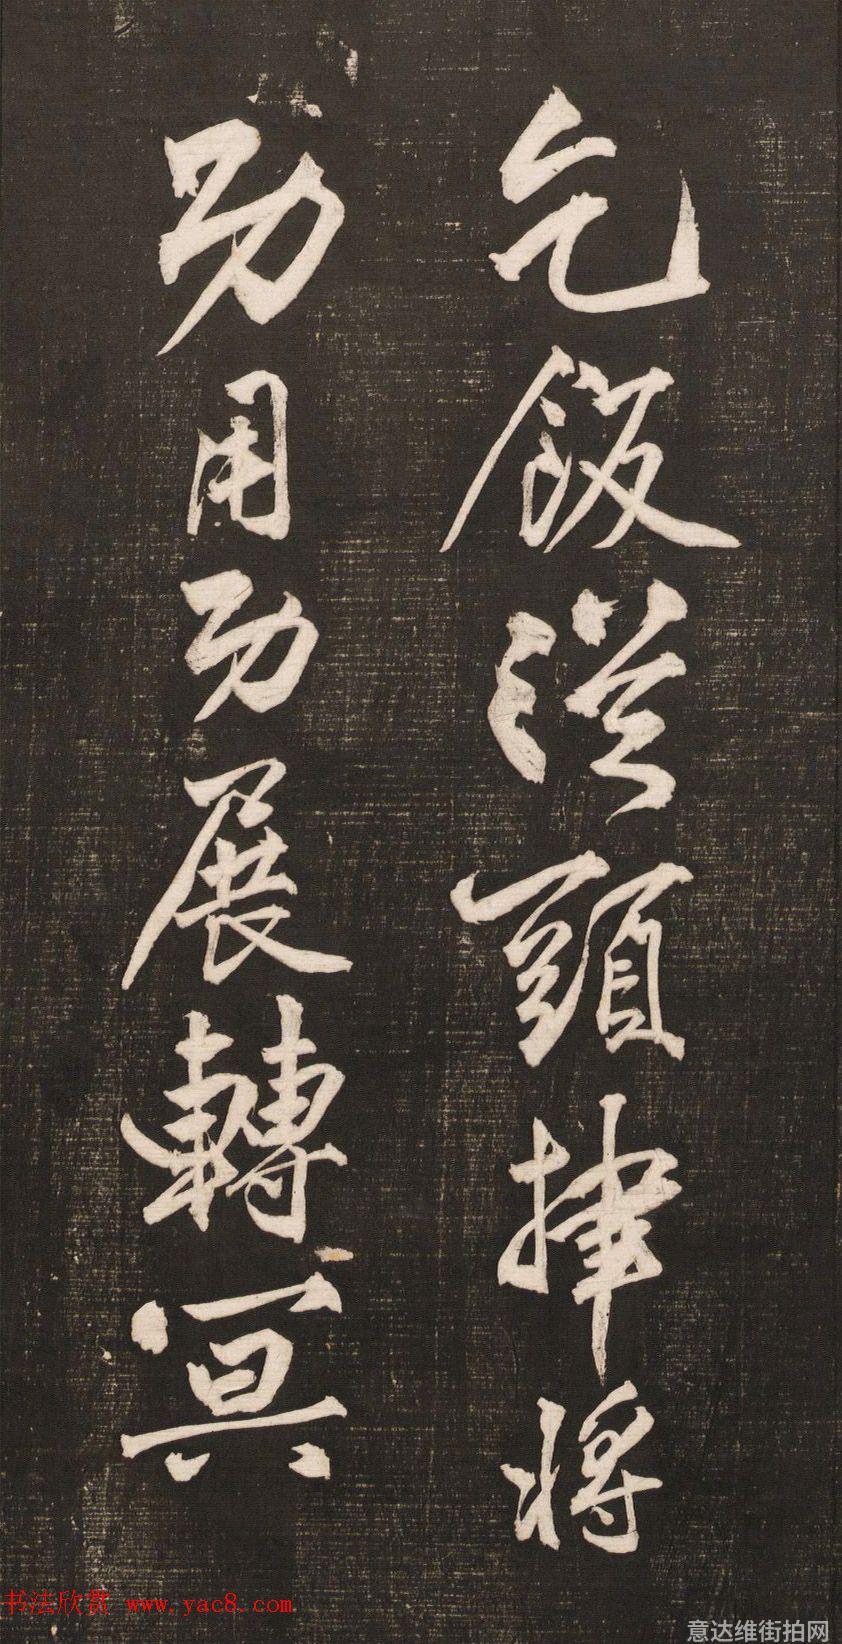 乞飯從頭律將
功用功展轉冥
书法欣赏 www.yac8.com
意达维街拍网